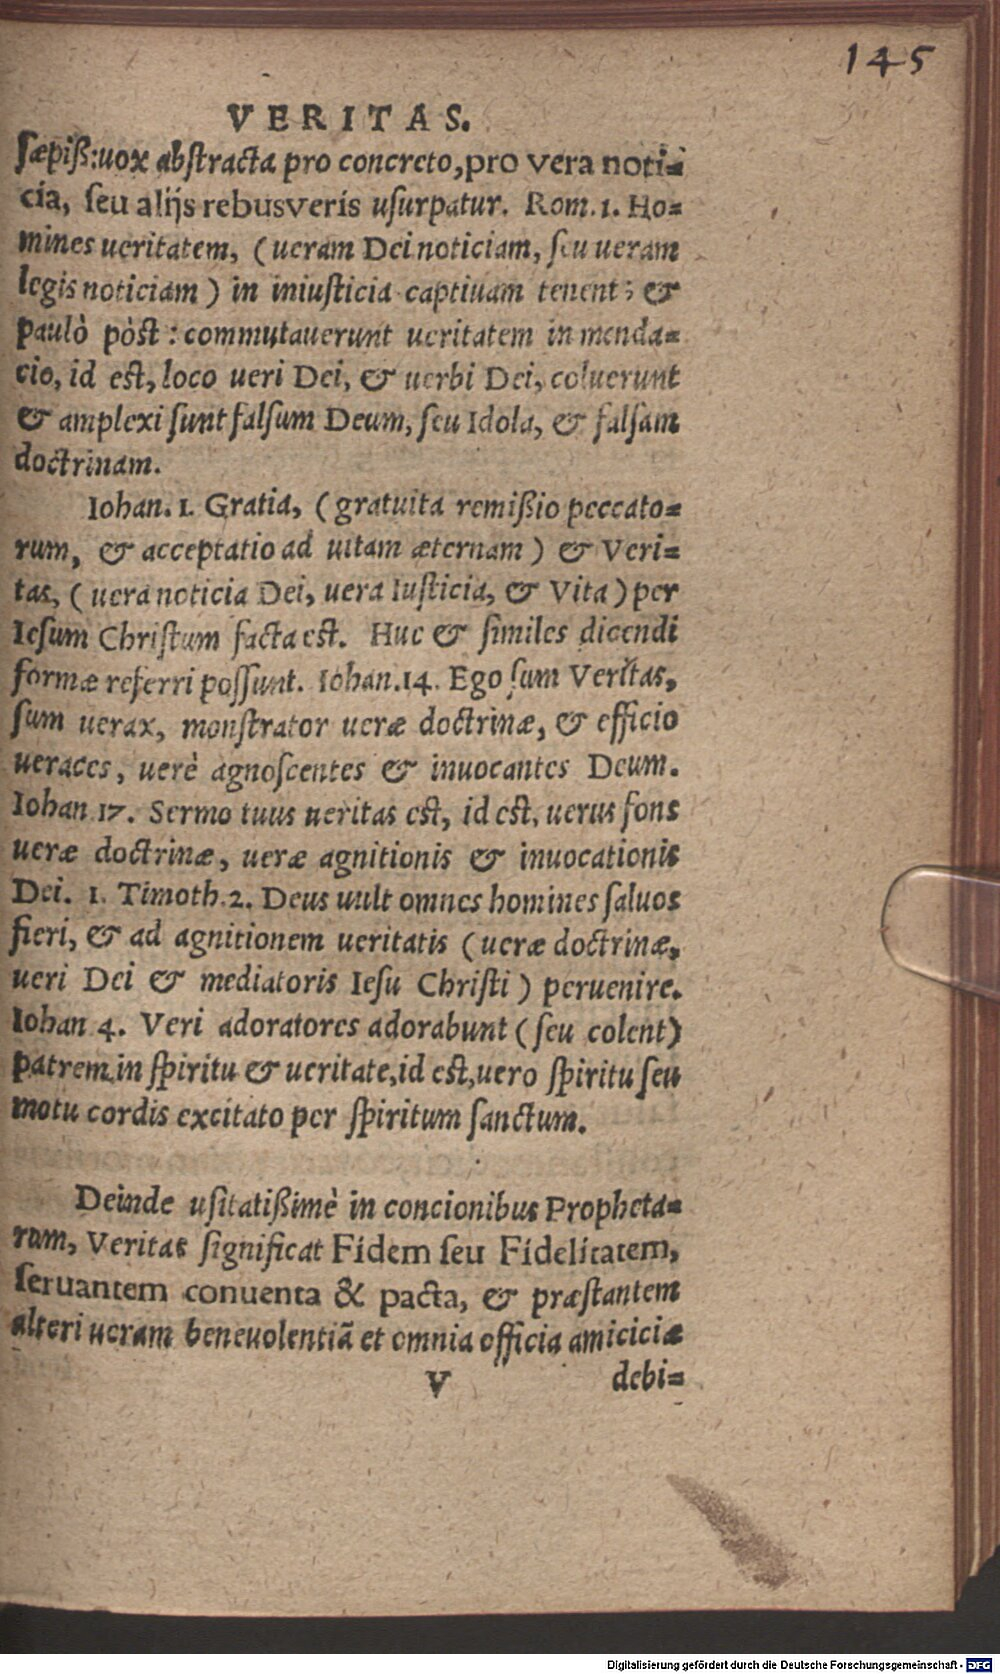 145
VERITAS.
sæpiß: uox abstracta pro concreto, pro vera noti=
cia, seu alijs rebus veris usurpatur. Rom. 1. Ho=
mines ueritatem, (ueram Dei noticiam, seu ueram
legis noticiam) in iniusticia captiuam tenent; &
paulò pòst: commutauerunt ueritatem in menda=
cio, id est, loco ueri Dei, & uerbi Dei, coluerunt
& amplexi sunt falsum Deum, seu Idola, & falsam
doctrinam.
Iohan. 1. Gratia, (gratuita remißio peccato=
rum, & acceptatio ad uitam æternam) & Veri=
tas, (uera noticia Dei, uera Iusticia, & Vita) per
Iesum Christum facta est. Huc & similes dicendi
formæ referri possunt. Iohan. 14. Ego sum Veritas,
sum uerax, monstrator ueræ doctrinæ, & efficio
ueraces, uerè agnoscentes & inuocantes Deum.
Iohan 17. Sermo tuus ueritas est, id est, uerus fons
ueræ doctrinæ, ueræ agnitionis & inuocationis
Dei. 1. Timoth. 2. Deus uult omnes homines saluos
fieri, & ad agnitionem ueritatis (ueræ doctrinæ,
ueri Dei & mediatoris Iesu Christi) peruenire.
Iohan 4. Veri adoratores adorabunt (seu colent)
patrem in spiritu & ueritate, id est, uero spiritu seu
motu cordis excitato per spiritum sanctum.
Deinde usitatißimè in concionibus Propheta=
rum, Veritas significat Fidem seu Fidelitatem,
seruantem conuenta & pacta, & præstantem
alteri ueram beneuolentiã et omnia officia amiciciæ
V debi=
Digitalisierung gefördert durch die Deutsche Forschungsgemeinschaft - DFG